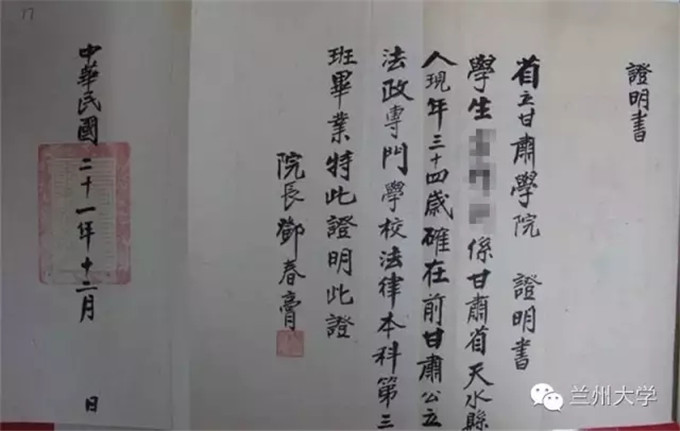 證明書
省立甘肅學院 證明書
學生 係甘肅省天水縣
人現年三十四歲確在前甘肅公立
法政專門學校法律本科第三
班畢業特此證明此證
院長鄧春膏
中華民國二十一年十二月 日
17
兰州大学